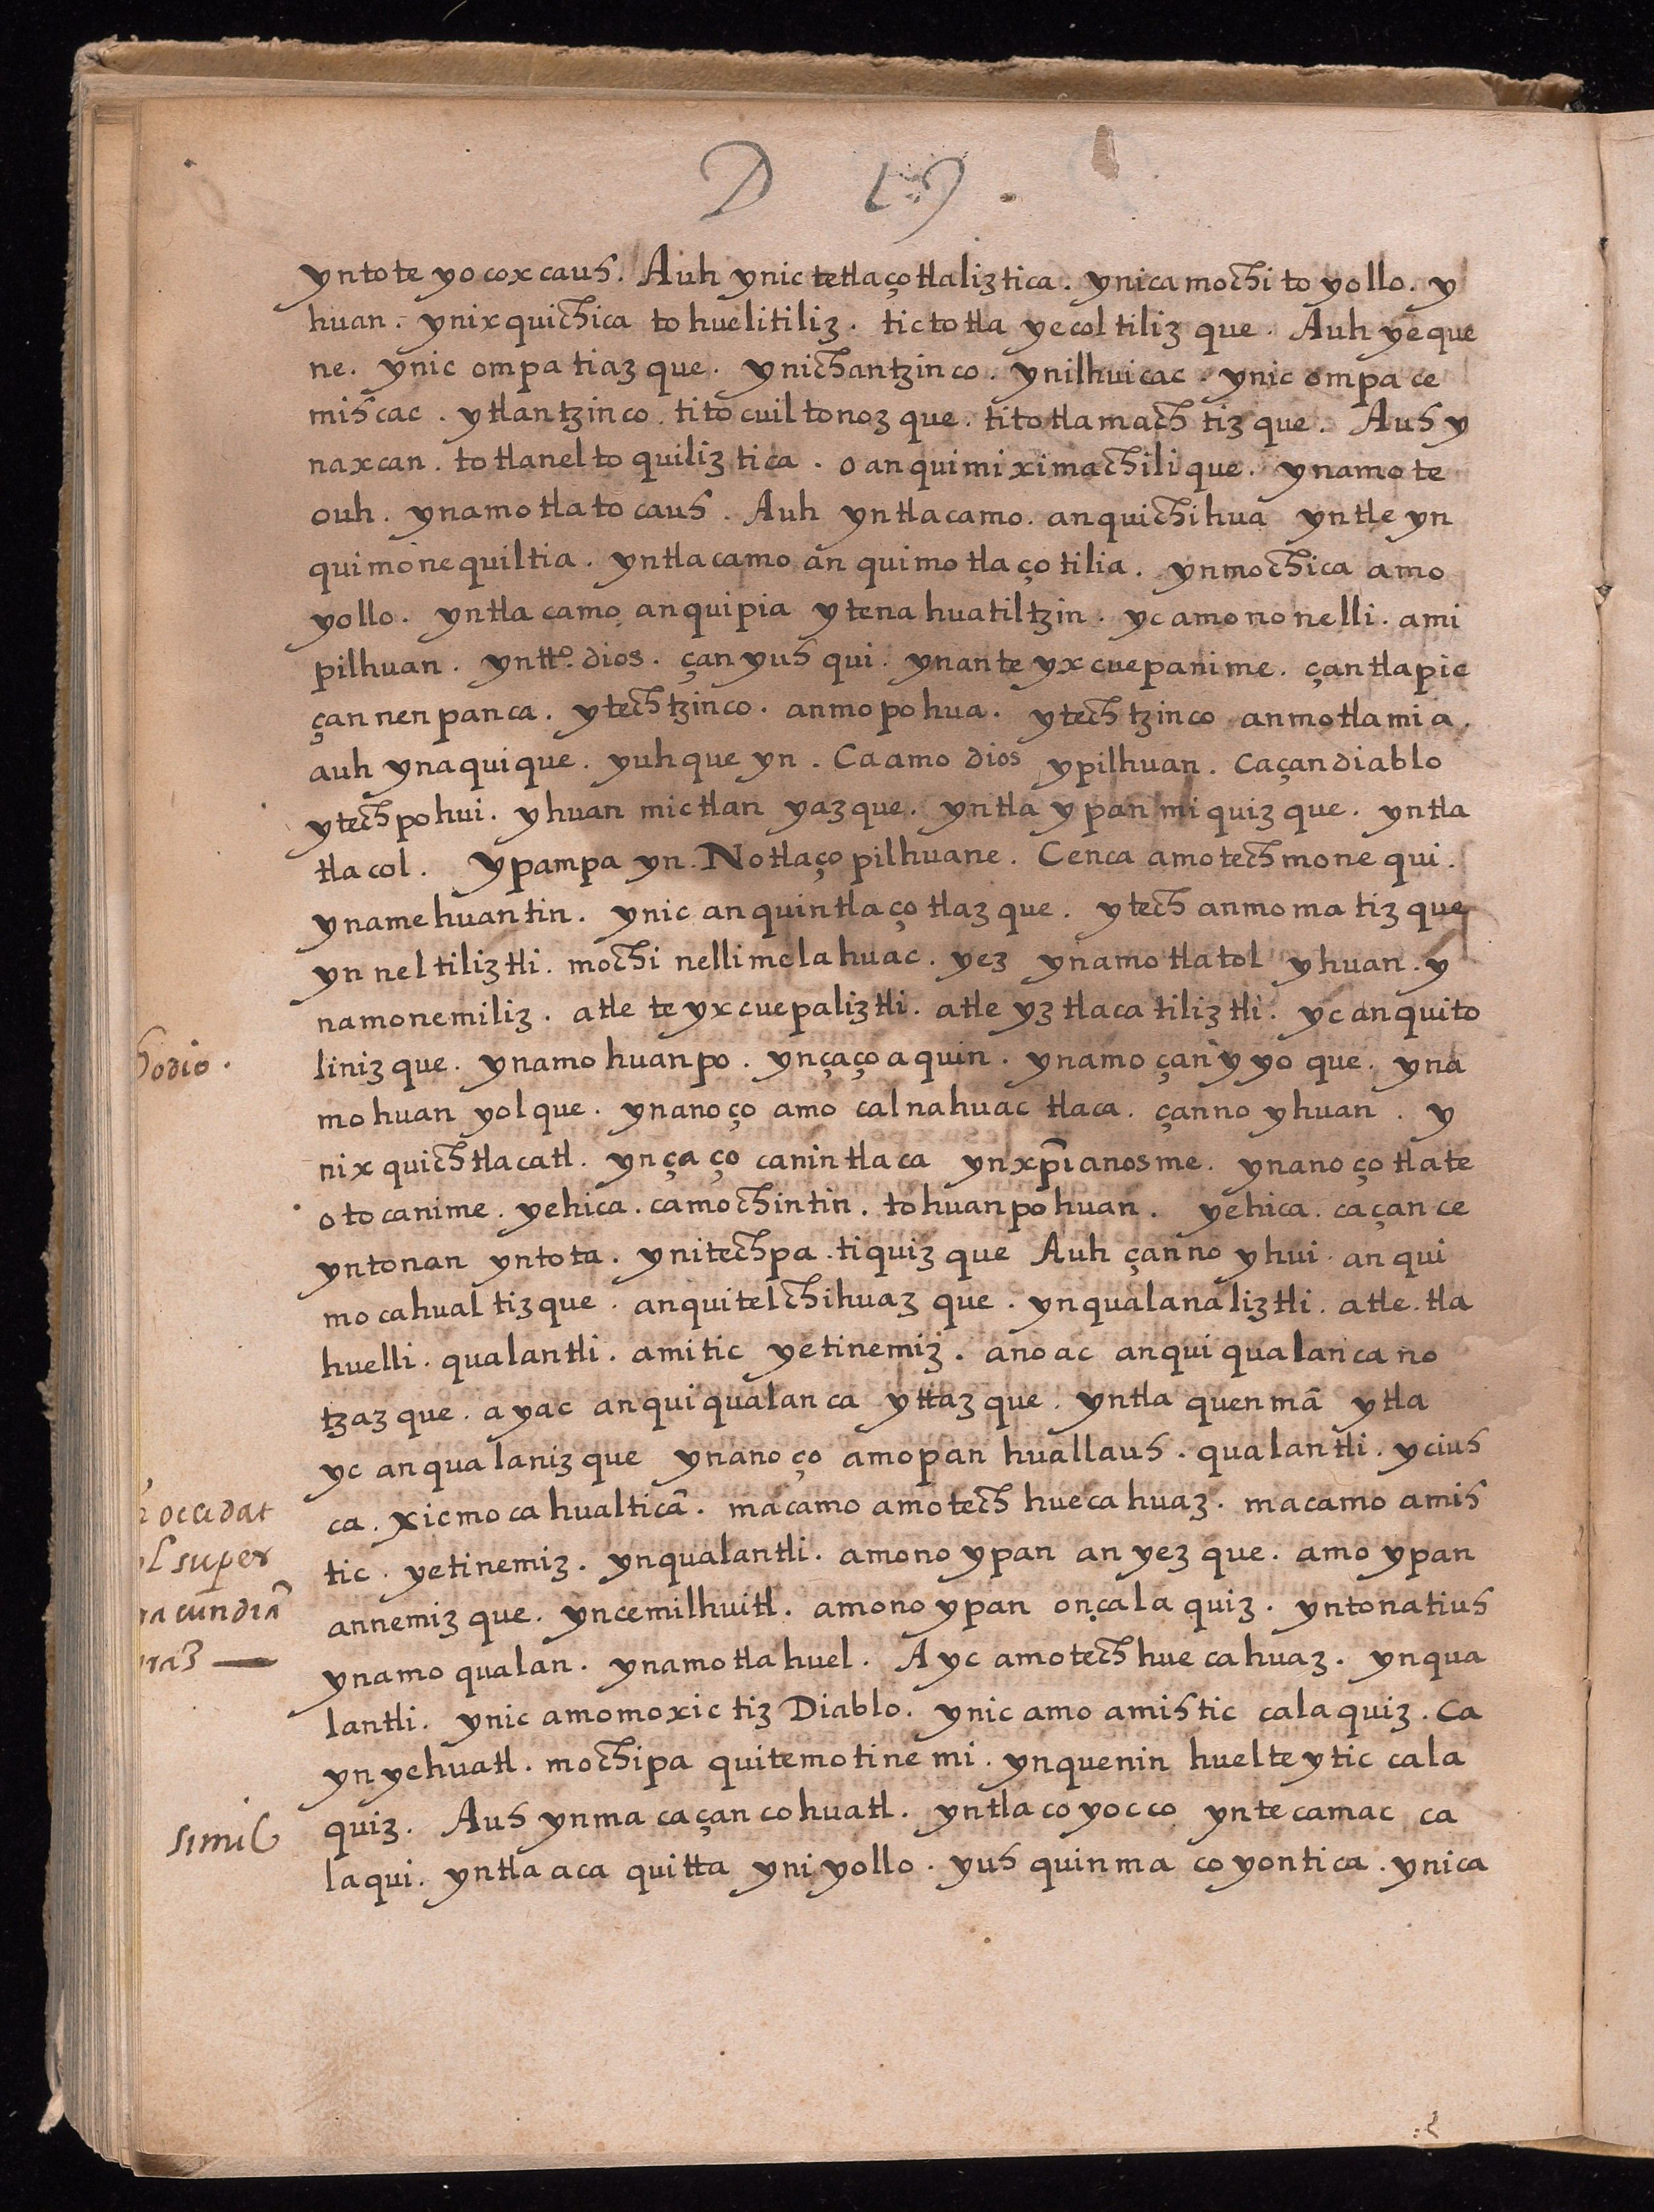 D 19.
yntote yocoxcauh. Auh ynic tetlaçotlaliztica. ynica mochi toyollo. y
huan. ynixquichica tohuelitiliz. tictotla yecoltilizque. Auh yeque
ne. ynic ompa tiazque. ynichantzinco. ynilhuicac. ynic ompa ce
mihcac. ytlantzinco. titocuiltonozque. titotlamachtizque. Auh y
naxcan. totlaneltoquiliztica. oanquimiximachilique. ynamote
ouh. ynamotlatocauh. Auh yntlacamo. anquichihua yntle yn
quimonequiltia. yntlacamo anquimotlaçotilia. ynmochica amo
yollo. yntlacamo anquipia ytenahuatiltzin. yc amono nelli. ami
pilhuan. yntt.º dios. çan yuhqui. ynanteyxcuepanime. çantlapic
çannenpanca. ytechtzinco. anmopohua. ytechtzinco anmotlamia.
auh ynaquique. yuhque yn. Ca amo dios ypilhuan. caçandiablo
ytechpohui. yhuan mictlan yazque. yntla ypan miquizque. yntla
tlacol. Ypampa yn. Notlaçopilhuane. Cenca amotechmonequi.
ynamehuantin. ynic anquintlaçotlazque. ytech anmomatizque
yn neltiliztli. mochi nelli melahuac. yez ynamotlatol yhuan. y
namonemiliz. atle teyxcuepaliztli. atle yztlacatiliztli. yc anquito
linizque. ynamohuanpo. ynçaço aquin. ynamo çanyyoque. yna
mohuanyolque. ynanoço amo calnahuac tlaca. çanno yhuan. y
nixquichtlacatl. ynçaço canin tlaca ynxp̄ianosme. ynanoço tlate
otocanime. yehica. camochintin. tohuanpohuan. yehica. caçan ce
yntonan yntota. ynitechpa. tiquizque Auh çanno yhui. anqui
mocahualtizque. anquitelchihuazque. ynqualanaliztli. atle. tla
huelli. qualantli. amitic yetinemiz. anoac anquiqualancano
tzazque. ayac anquiqualanca yttazque. yntla quenmā ytla
yc anqualanizque ynanoço amopan huallauh. qualantli. yciuh
ca. xicmocahualticā. macamo amotech huecahuaz. macamo amih
tic. yetinemiz. ynqualantli. amono ypan anyezque. amo ypan
annemizque. yncemilhuitl. amono ypan onçalaquiz. yntonatiuh
ynamoqualan. ynamotlahuel. Ayc amotech huecahuaz. ynqua
lantli. ynic amomoxictiz Diablo. ynic amo amihtic calaquiz. Ca
ynyehuatl. mochipa quitemotinemi. ynquenin huelteytic cala
quiz. Auh ynma caçan cohuatl. yntlacoyocco yntecamac ca
laqui. yntla aca quitta yniyollo. yuhquinma coyontica. ynica
hodio.
occidat
super
racundiā
simil